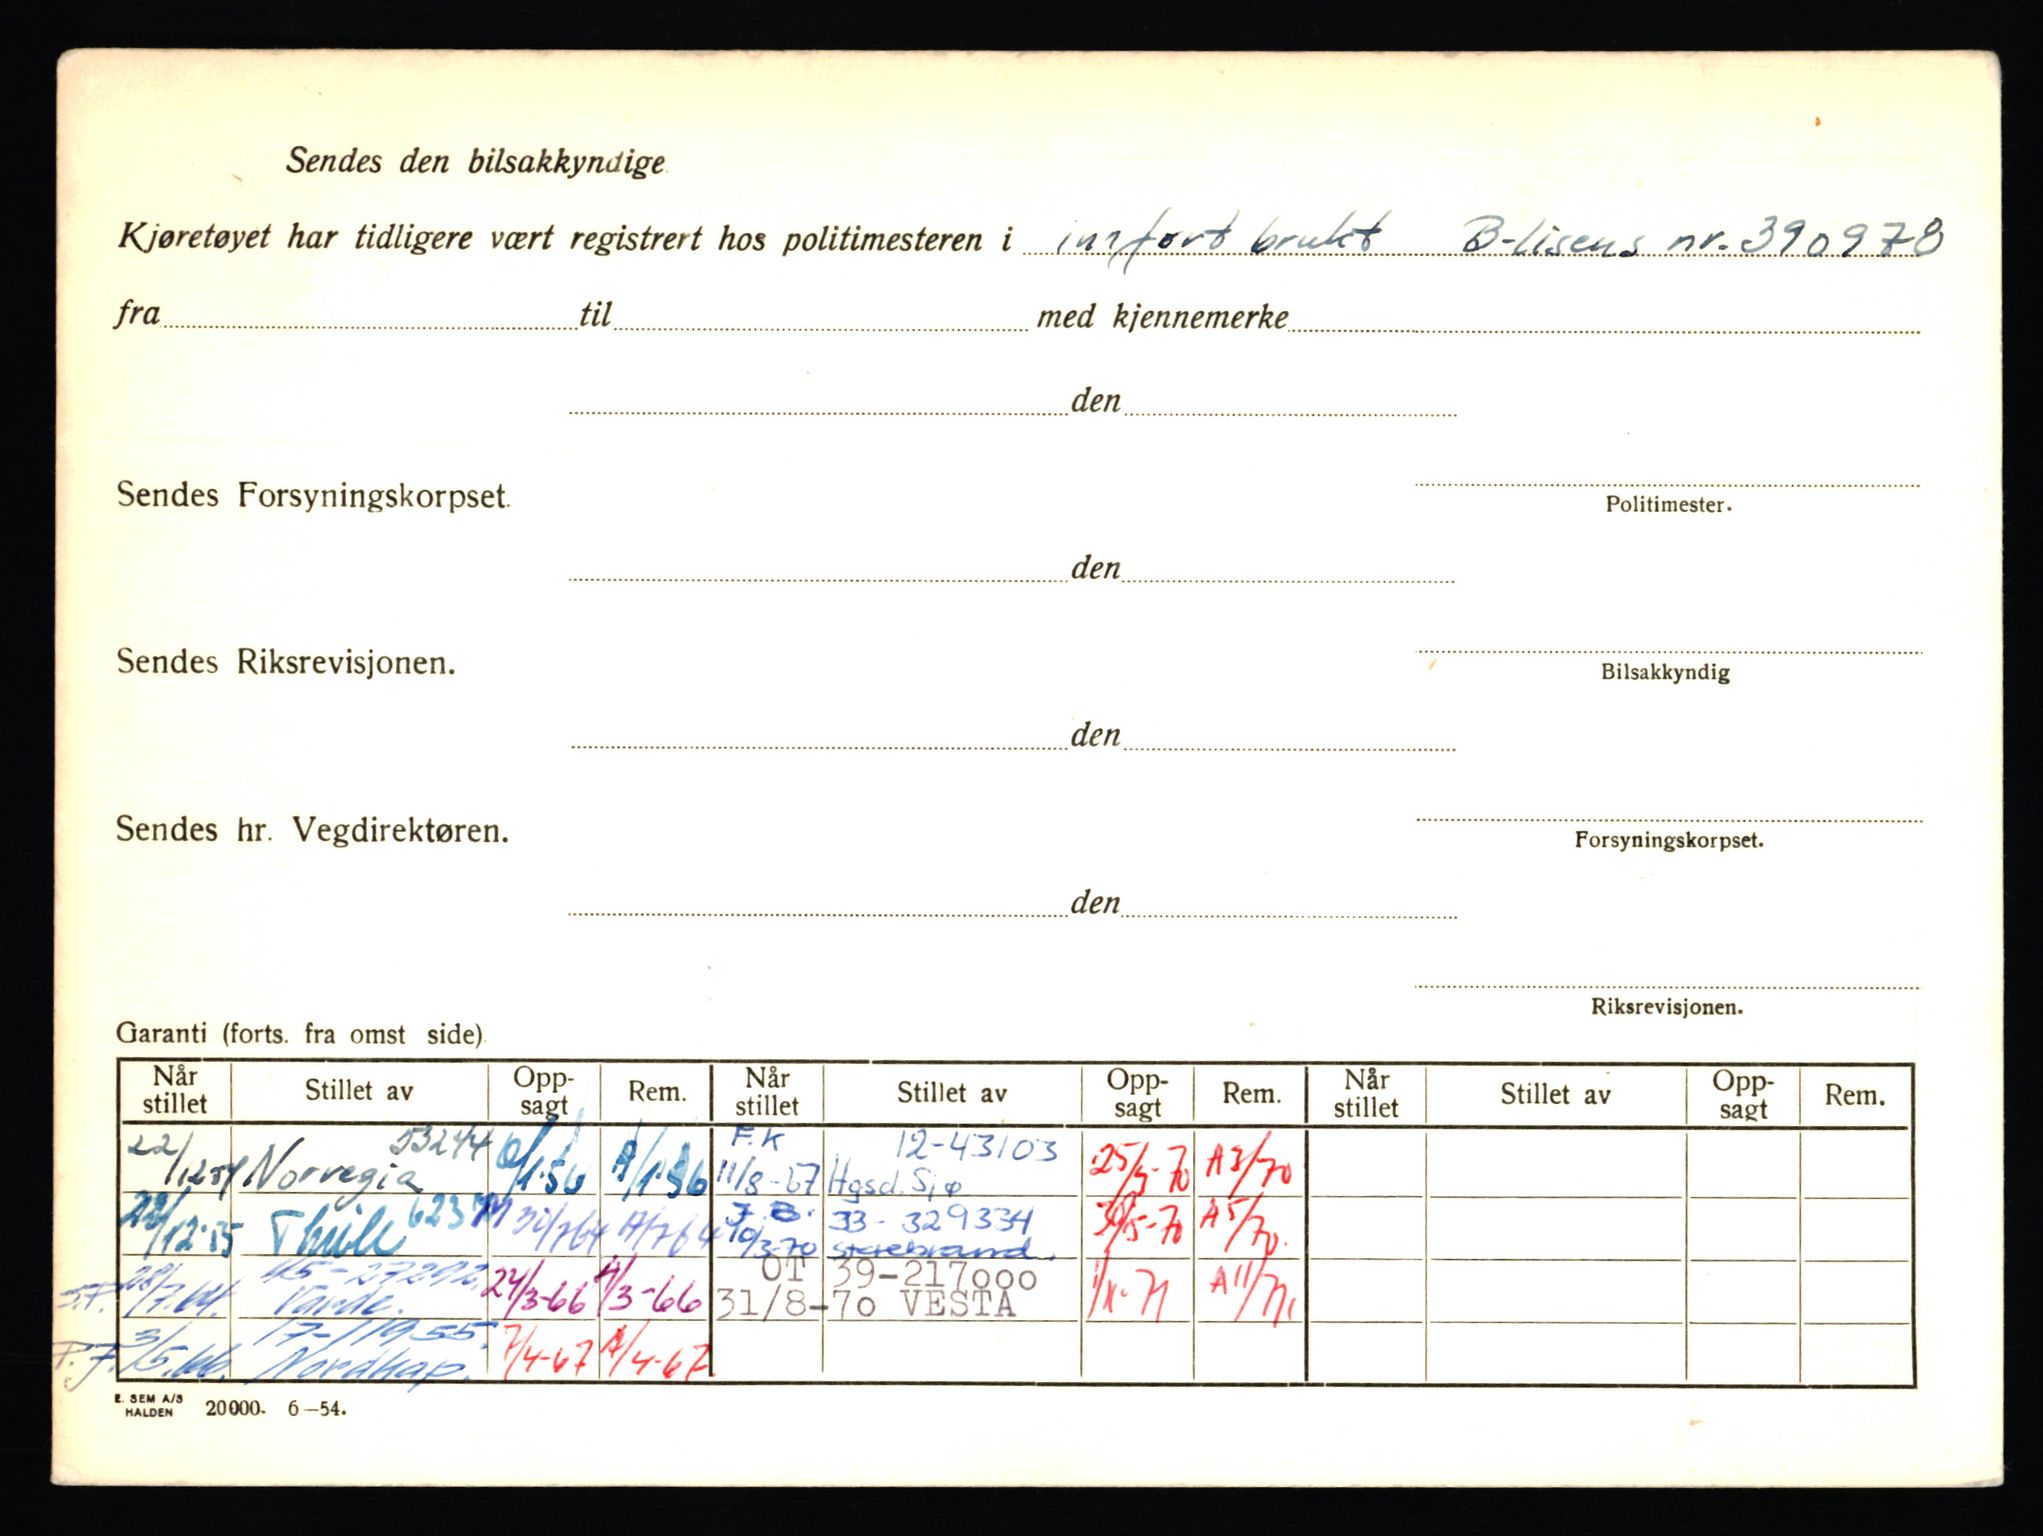 Sendes den bilsakkyndige
Kjøretøyet har tidligere vært registrert hos politimesteren i innført brukt B-lisens nr. 390978
fra til med kjennemerke
den
Sendes Forsyningskorpset.
Politimester.
den
Sendes Riksrevisjonen.
Bilsakkyndig
den
Sendes hr. Vegdirektøren.
Forsyningskorpset.
den
Riksrevisjonen.
Garanti (forts. fra omst side)
Når stillet Stillet av Opp-sagt Rem. Når stillet Stillet av Opp-sagt Rem. Når stillet Stillet av Opp-sagt Rem.
22/12 54 Norvegia 53244 /1.56 A/1.56 F.K 11/8-67 12-43103 Hgsd. Sjø 25/3-70 A3/70
/12.55 Thule 31/7 64 A/7 64 J.B. 10/3-70 33-329334 Storebrand. 30/5-70 A5/70.
S.P. 28/7.64. 45-27292. Varde. 24/3-66 A/3-66 OT 31/8-70 39-217000 VESTA A11/71
P.F. 3/5.66. 17-11955. Nordkap. 7/4-67 A/4-67
E. SEM A/S
HALDEN 20000. 6—54.